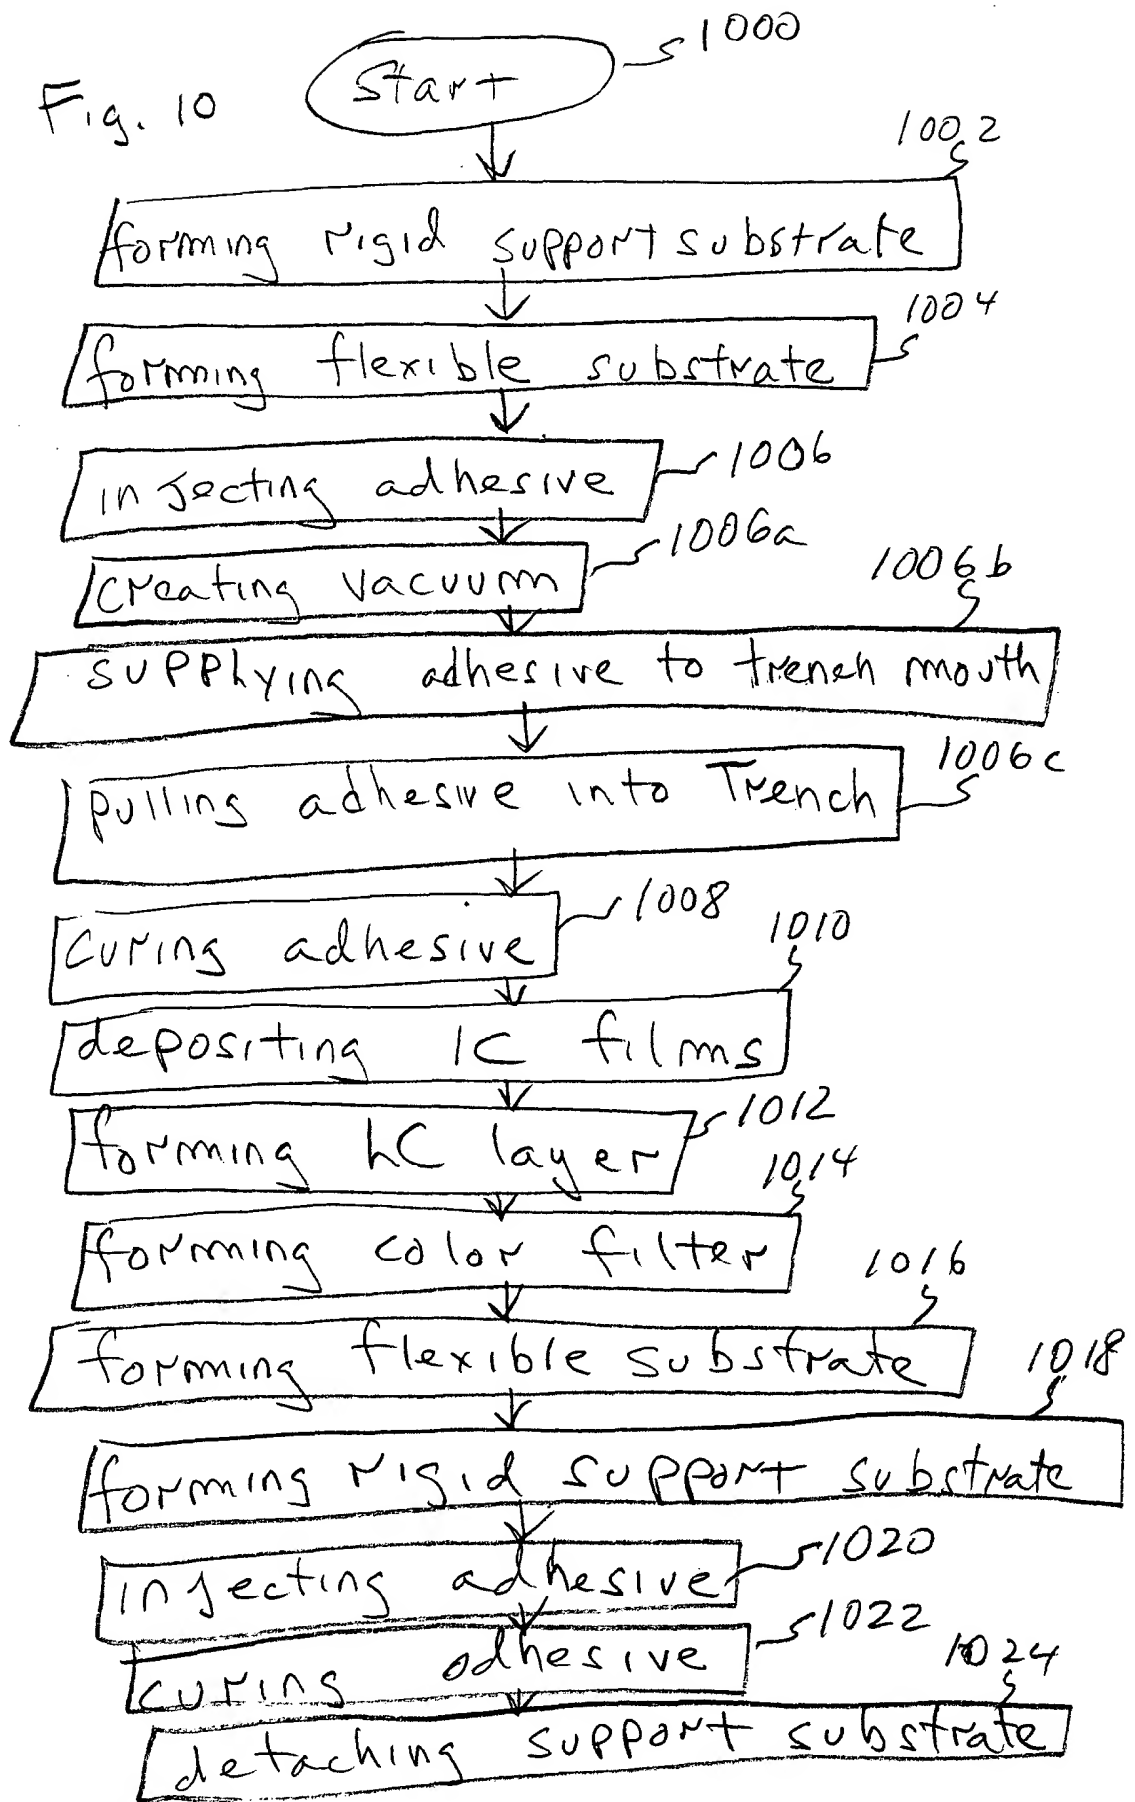 1000
Start
Fig. 10
1002
forming rigid support substrate
1004
forming flexible substrate
1006
injecting adhesive
1006a
creating vacuum
1006b
supplying adhesive to trench mouth
1006c
pulling adhesive into Trench
1008
curing adhesive
1010
depositing IC films
1012
forming LC layer
1014
forming color filter
1016
forming flexible substrate
1018
forming rigid support substrate
1020
injecting adhesive
1022
curing adhesive
1024
detaching support substrate